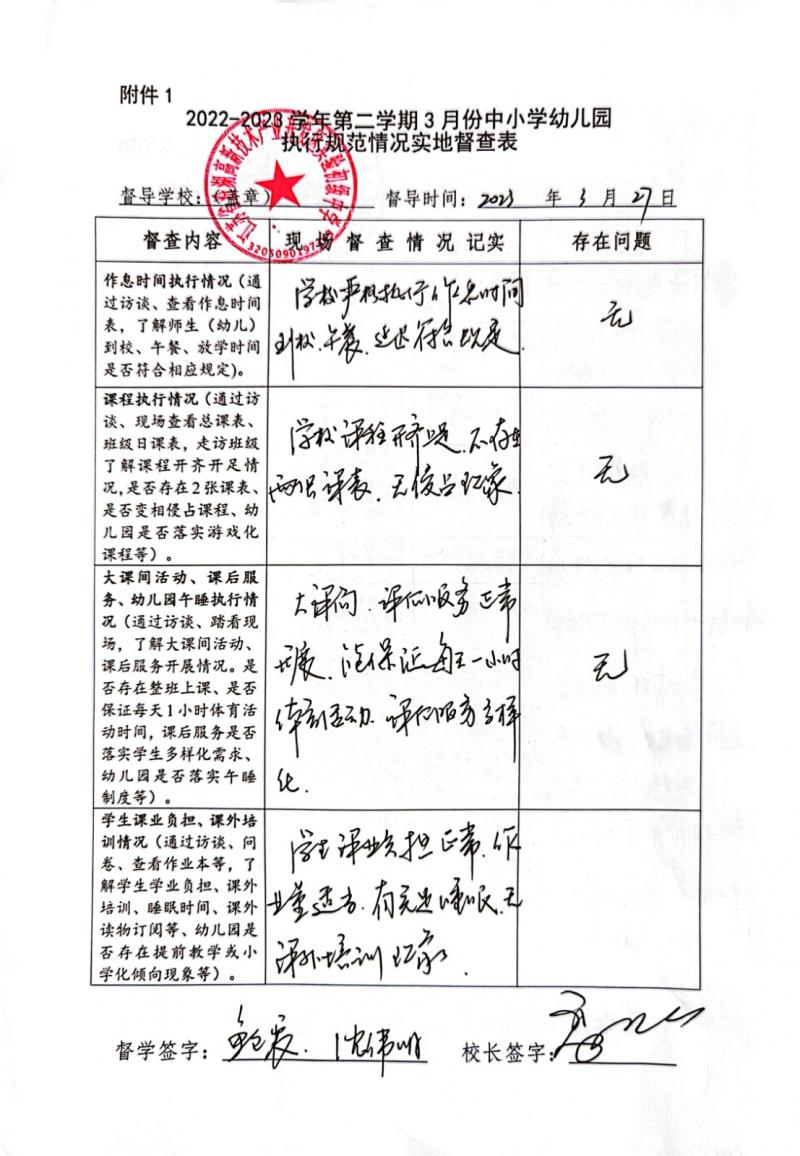 附件1
2022-2023学年第二学期3月份中小学幼儿园
执行规范情况实地督查表
督导学校：（盖章） 督导时间：2023 年 3 月 27 日
督查内容 现场督查情况记实 存在问题
作息时间执行情况（通
过访谈、查看作息时间
表，了解师生（幼儿）
到校、午餐、放学时间
是否符合相应规定）。
学校严格执行作息时间
到校、午餐、 符合规定.
无
课程执行情况（通过访
谈、现场查看总课表、
班级日课表，走访班级
了解课程开齐开足情
况，是否存在2张课表、
是否变相侵占课程、幼
儿园是否落实游戏化
课程等）。
学校课程开齐足.不存在
两只课表.无侵占现象.
无
大课间活动、课后服
务、幼儿园午睡执行情
况（通过访谈、踏看现
场，了解大课间活动、
课后服务开展情况。是
否存在整班上课、是否
保证每天1小时体育活
动时间，课后服务是否
落实学生多样化需求、
幼儿园是否落实午睡
制度等）。
大课间.课后服务正常
开展. 保证每天一小时
体育活动.课后服务多样
化.
无
学生课业负担、课外培
训情况（通过访谈、问
卷、查看作业本等，了
解学生学业负担、课外
培训、睡眠时间、课外
读物订阅等、幼儿园是
否存在提前教学或小
学化倾向现象等）。
学生课业负担正常.作
业量适当.有充足睡眠.无
课外培训现象.
督学签字： 沈伟明 校长签字：